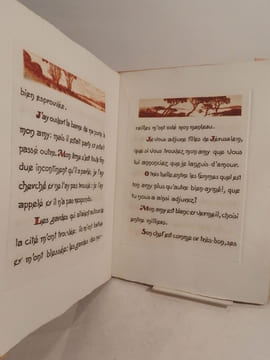 bien esprouvée.
J'ay ouvert la barre de ma porte à
mon amy: mais il estoit party et estoit
passé outre. Mon âme s'est toute fon
due incontinent qu'il a parlé: je l'ay
cherché et ne l'ay pas trouvé: je l'ay
appelé et il n'a pas respondu.
Les gardes qui
la cité m'ont trouvée: ils m'ont battue
et m'ont blessée: les gardes des mu-
railles m'ont osté mon manteau.
Je vous adjure filles de Jerusalem,
que si vous trouvez mon amy que vous
luy annonciez que je languis d'amour.
O très belle entre les femmes quel est
ton amy plus qu'autre bien aymé, que
tu nous a ainsi adjurez?
Mon amy est blanc et vermeil, choisi
entre milliers.
Son chef est comme or très-bon, ses